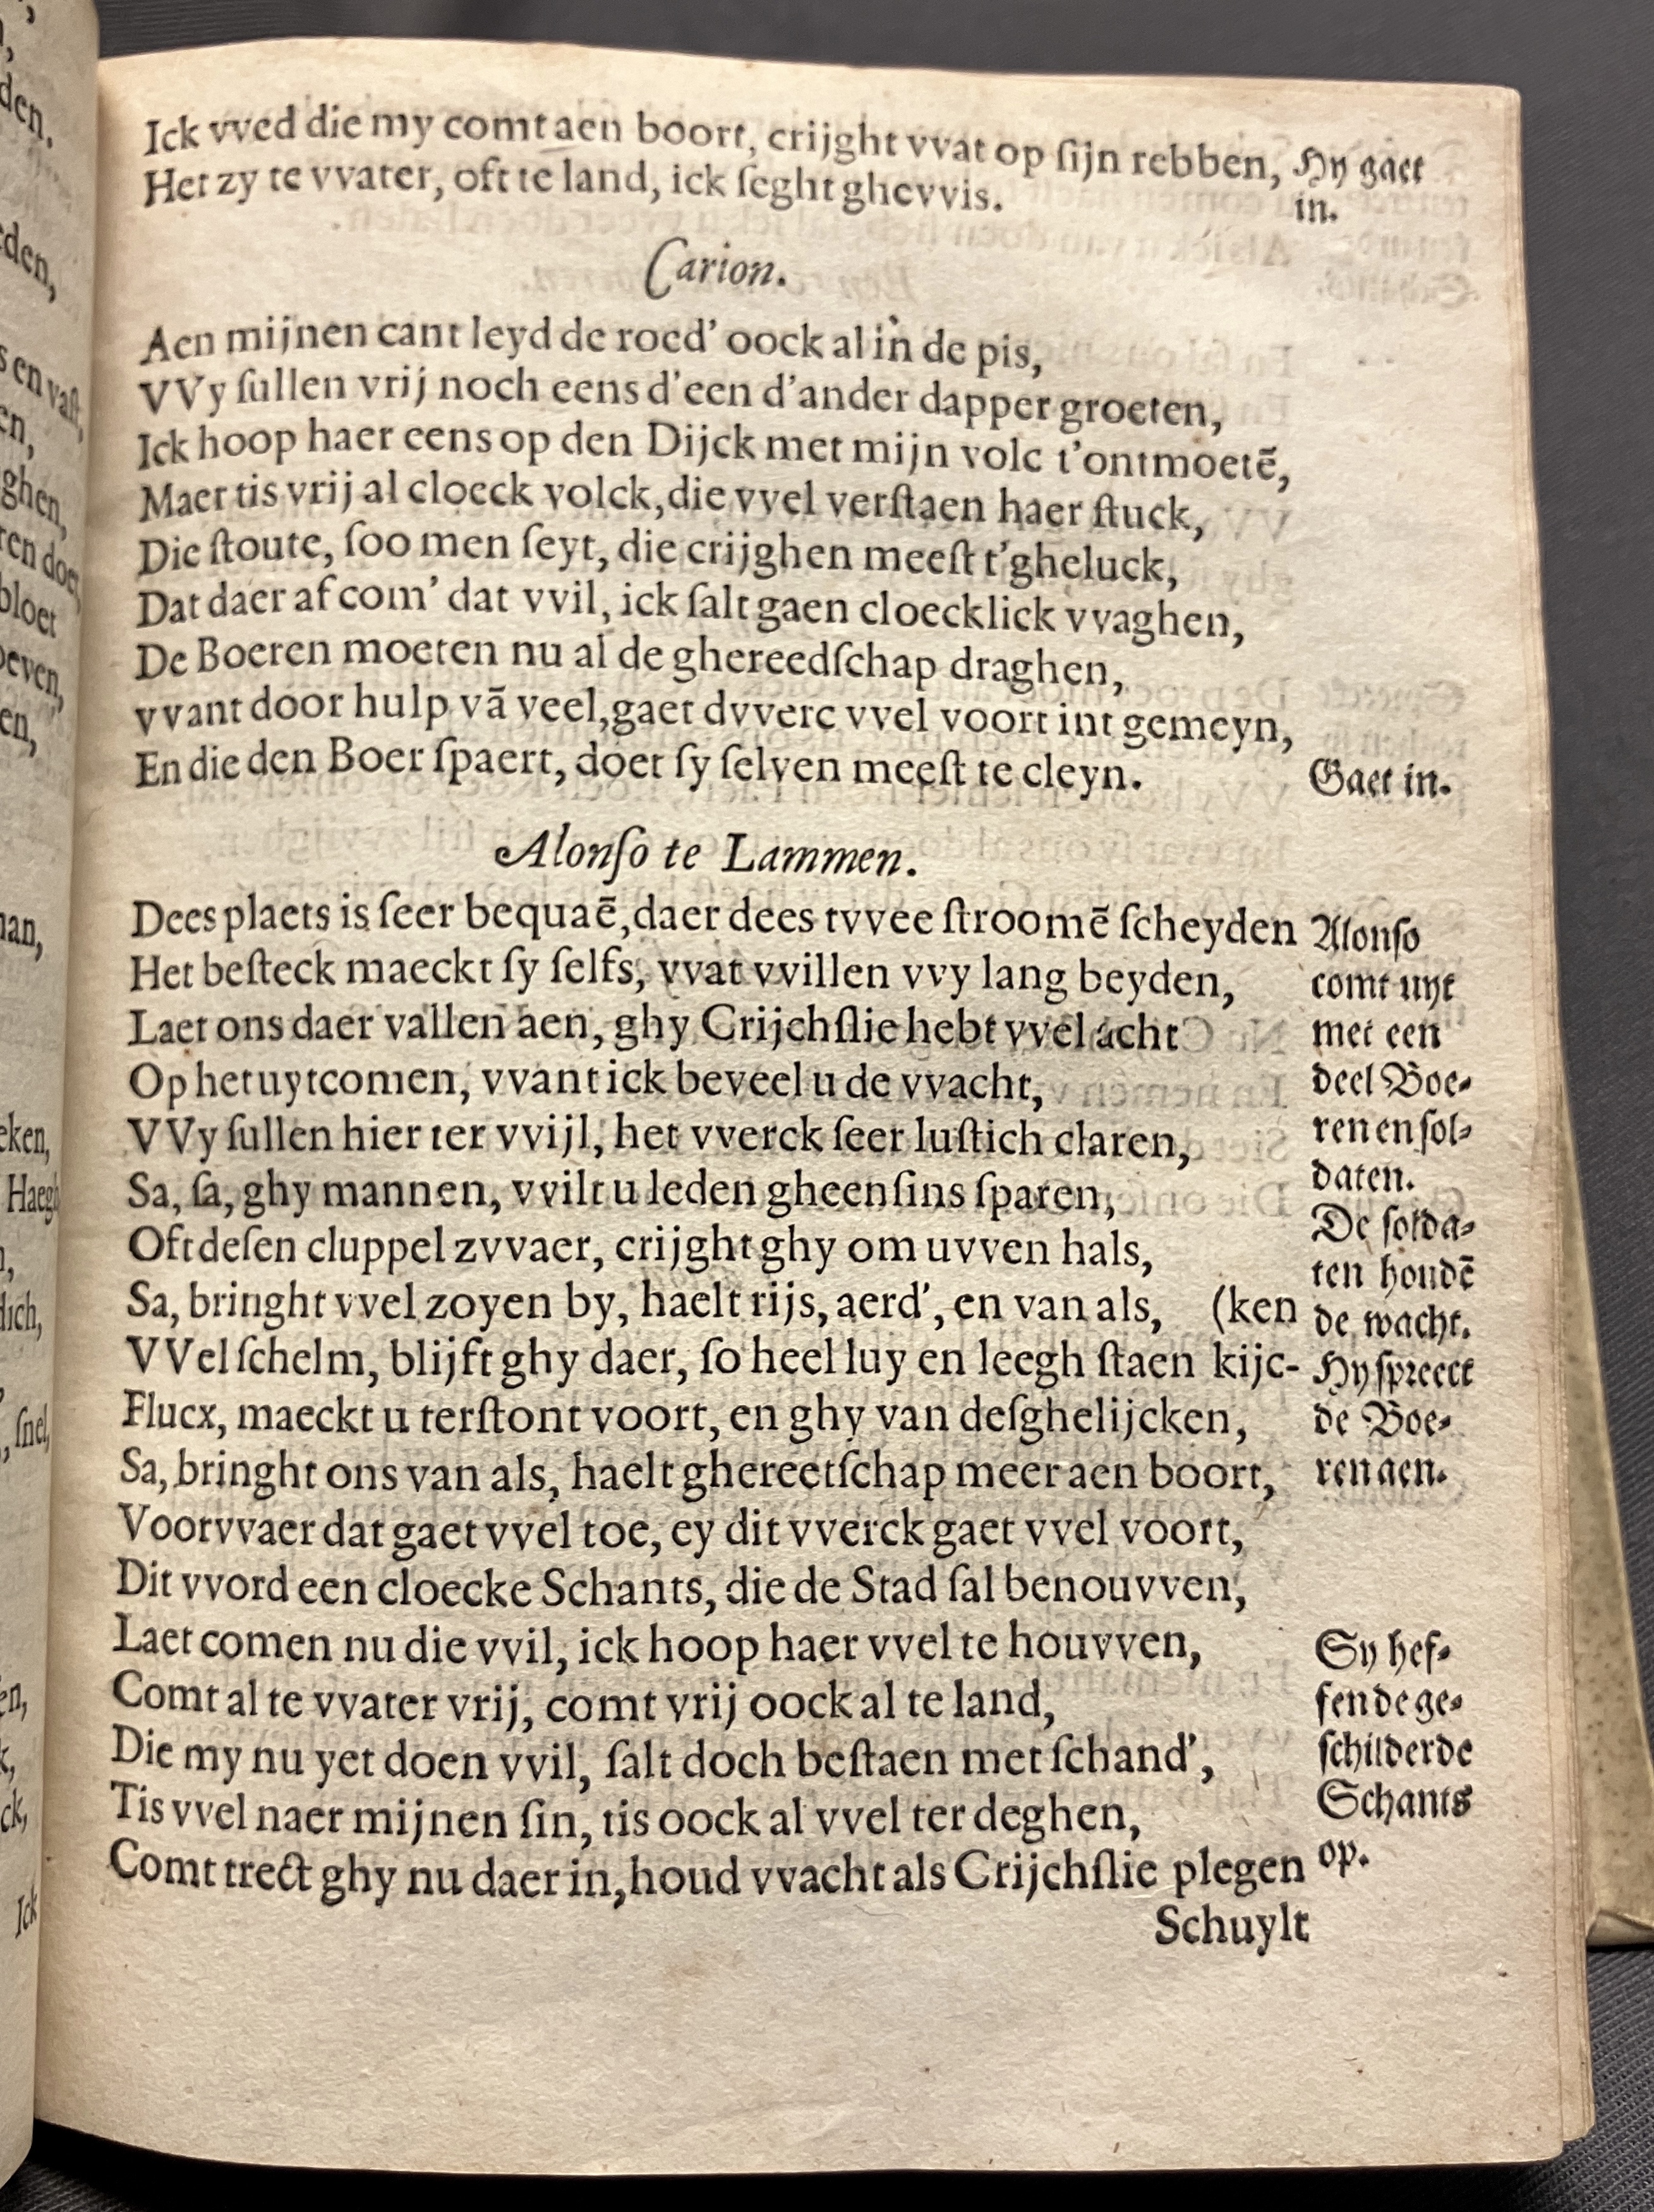 Ick vved die my comt aen boort, crijght vvat op ſijn rebben,
Hy gaet
Het zy te vvater, oft te land, ick ſeght ghevvis.
in.
Carion.
Aen mijnen cant leyd de roed' oock al in de pis,
VVy ſullen vrij noch eens d'een d'ander dapper groeten,
Ick hoop haer eens op den Dijck met mijn volc t'ontmoetē,
Maer tis vrij al cloeck volck, die vvel verſtaen haer ſtuck,
Die ſtoute, ſoo men ſeyt, die crijghen meeſt t'gheluck,
Dat daer af com' dat vvil, ick ſalt gaen cloecklick vvaghen,
De Boeren moeten nu al de ghereedſchap draghen,
vvant door hulp vā veel, gaet dvverc vvel voort int gemeyn,
En die den Boer ſpaert, doet ſy ſelven meeſt te cleyn.
Gaet in.
Alonſo te Lammen.
Dees plaets is ſeer bequaē, daer dees tvvee ſtroomē ſcheyden
Het beſteck maeckt ſy ſelfs, vvat vvillen vvy lang beyden,
Laet ons daer vallen aen, ghy Crijchſlie hebt vvel acht
Op het uytcomen, vvant ick beveel u de vvacht,
VVy ſullen hier ter vvijl, het vverck ſeer luſtich claren,
Sa, ſa, ghy mannen, vvilt u leden gheenſins ſparen,
Oft deſen cluppel zvvaer, crijght ghy om uvven hals,
Sa, bringht vvel zoyen by, haelt rijs, aerd', en van als, (ken
VVel ſchelm, blijft ghy daer, ſo heel luy en leegh ſtaen kijc-
Flucx, maeckt u terſtont voort, en ghy van deſghelijcken,
Sa, bringht ons van als, haelt ghereetſchap meer aen boort,
Voorvvaer dat gaet vvel toe, ey dit vverck gaet vvel voort,
Dit vvord een cloecke Schants, die de Stad ſal benouvven,
Laet comen nu die vvil, ick hoop haer vvel te houvven,
Comt al te vvater vrij, comt vrij oock al te land,
Die my nu yet doen vvil, ſalt doch beſtaen met ſchand',
Tis vvel naer mijnen ſin, tis oock al vvel ter deghen,
Comt trect ghy nu daer in, houd vvacht als Crijchſlie plegen
Alonſo
comt uyt
met een
deel Boe-
ren en ſol-
daten.
De ſolda-
ten houdē
de wacht.
Hy ſpreect
de Boe-
ren aen.
Sy hef-
fen de ge-
ſchilderde
Schants
op.
Schuylt